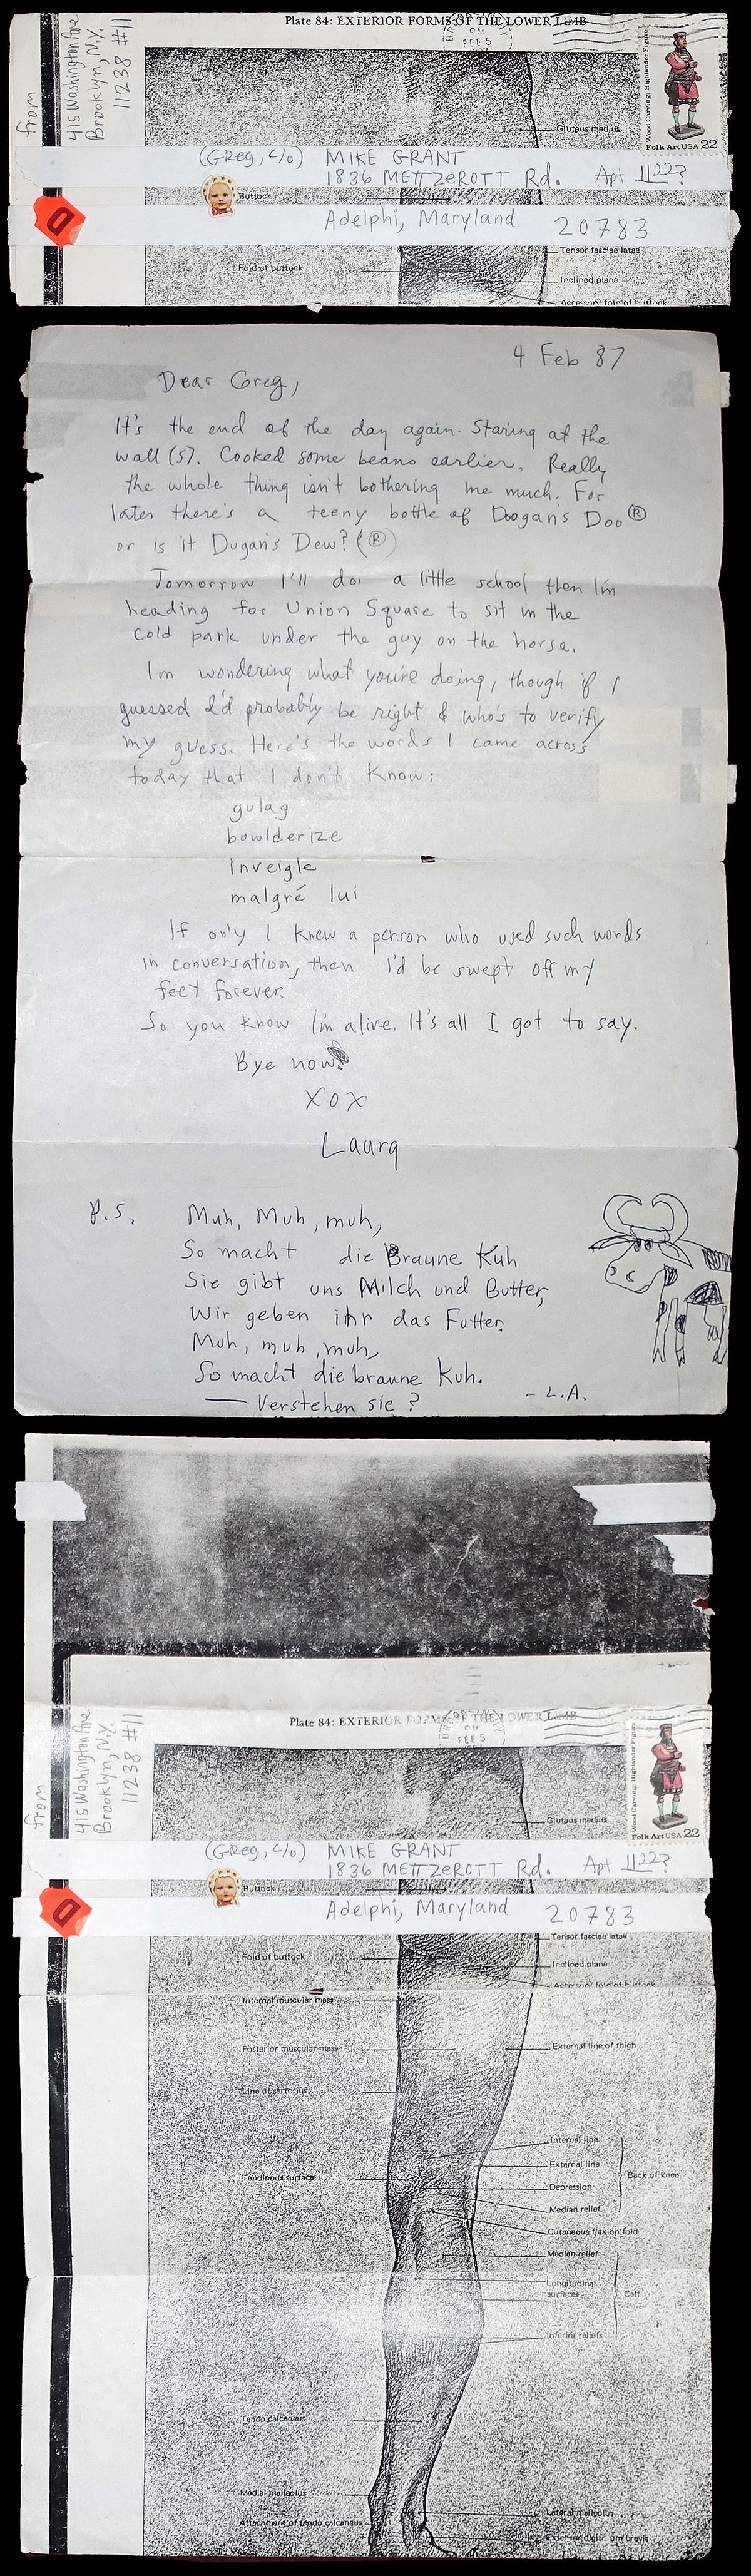 Plate 84: EXTERIOR FORMS OF THE LOWER LIMB
from
415 Washington Ave
Brooklyn, N.Y.
11238 #11
PM
FEB 5
Wood Carving: Highlander Figure
Folk Art USA 22
Gluteus medius
(Greg, c/o) MIKE GRANT
1836 METTZEROTT Rd. Apt 1122?
Buttock
D
Adelphi, Maryland 20783
Tensor fasciae latae
Fold of buttock
Inclined plane
Accessory fold of buttock
4 Feb 87
Dear Greg,
It's the end of the day again. Staring at the
wall (s). Cooked some beans earlier. Really
the whole thing isn't bothering me much. For
later there's a teeny bottle of Doogan's Doo ®
or is it Dugan's Dew? (®)
Tomorrow I'll do a little school then I'm
heading for Union Square to sit in the
cold park under the guy on the horse.
I'm wondering what you're doing, though if I
guessed I'd probably be right & who's to verify
my guess. Here's the words I came across
today that I don't know:
gulag
bowlderize
inveigle
malgré lui
If only I knew a person who used such words
in conversation, then I'd be swept off my
feet forever.
So you know I'm alive. It's all I got to say.
Bye now
XOX
Laura
P.S. Muh, Muh, muh,
So macht die Braune Kuh
Sie gibt uns Milch und Butter,
Wir geben ihr das Futter.
Muh, muh, muh,
So macht die braune Kuh.
— Verstehen sie? - L.A.
Plate 84: EXTERIOR FORMS OF THE LOWER LIMB
from
415 Washington Ave
Brooklyn, N.Y.
11238 #11
PM
FEB 5
Wood Carving: Highlander Figure
Folk Art USA 22
Gluteus medius
(Greg, c/o) MIKE GRANT
1836 METTZEROTT Rd. Apt 1122?
Buttock
D
Adelphi, Maryland 20783
Tensor fasciae latae
Fold of buttock
Inclined plane
Accessory fold of buttock
Internal muscular mass
Posterior muscular mass
External line of thigh
Line of sartorius
Internal line
External line
Back of knee
Tendinous surface
Depression
Median relief
Cutaneous flexion fold
Median relief
Longitudinal
surfaces
Calf
Inferior reliefs
Tendo calcaneus
Medial malleolus
Lateral malleolus
Attachment of tendo calcaneus